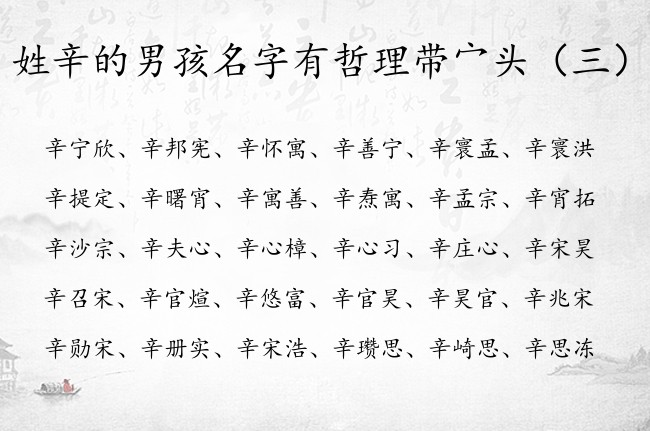 姓辛的男孩名字有哲理带宀头（三）
辛宁欣、辛邦宪、辛怀寓、辛善宁、辛寰孟、辛寰洪
辛提定、辛曙宵、辛寓善、辛焘寓、辛孟宗、辛宵拓
辛沙宗、辛夫心、辛心樟、辛心习、辛庄心、辛宋昊
辛召宋、辛官煊、辛悠富、辛官昊、辛昊官、辛兆宋
辛勋宋、辛册实、辛宋浩、辛瓒思、辛崎思、辛思冻